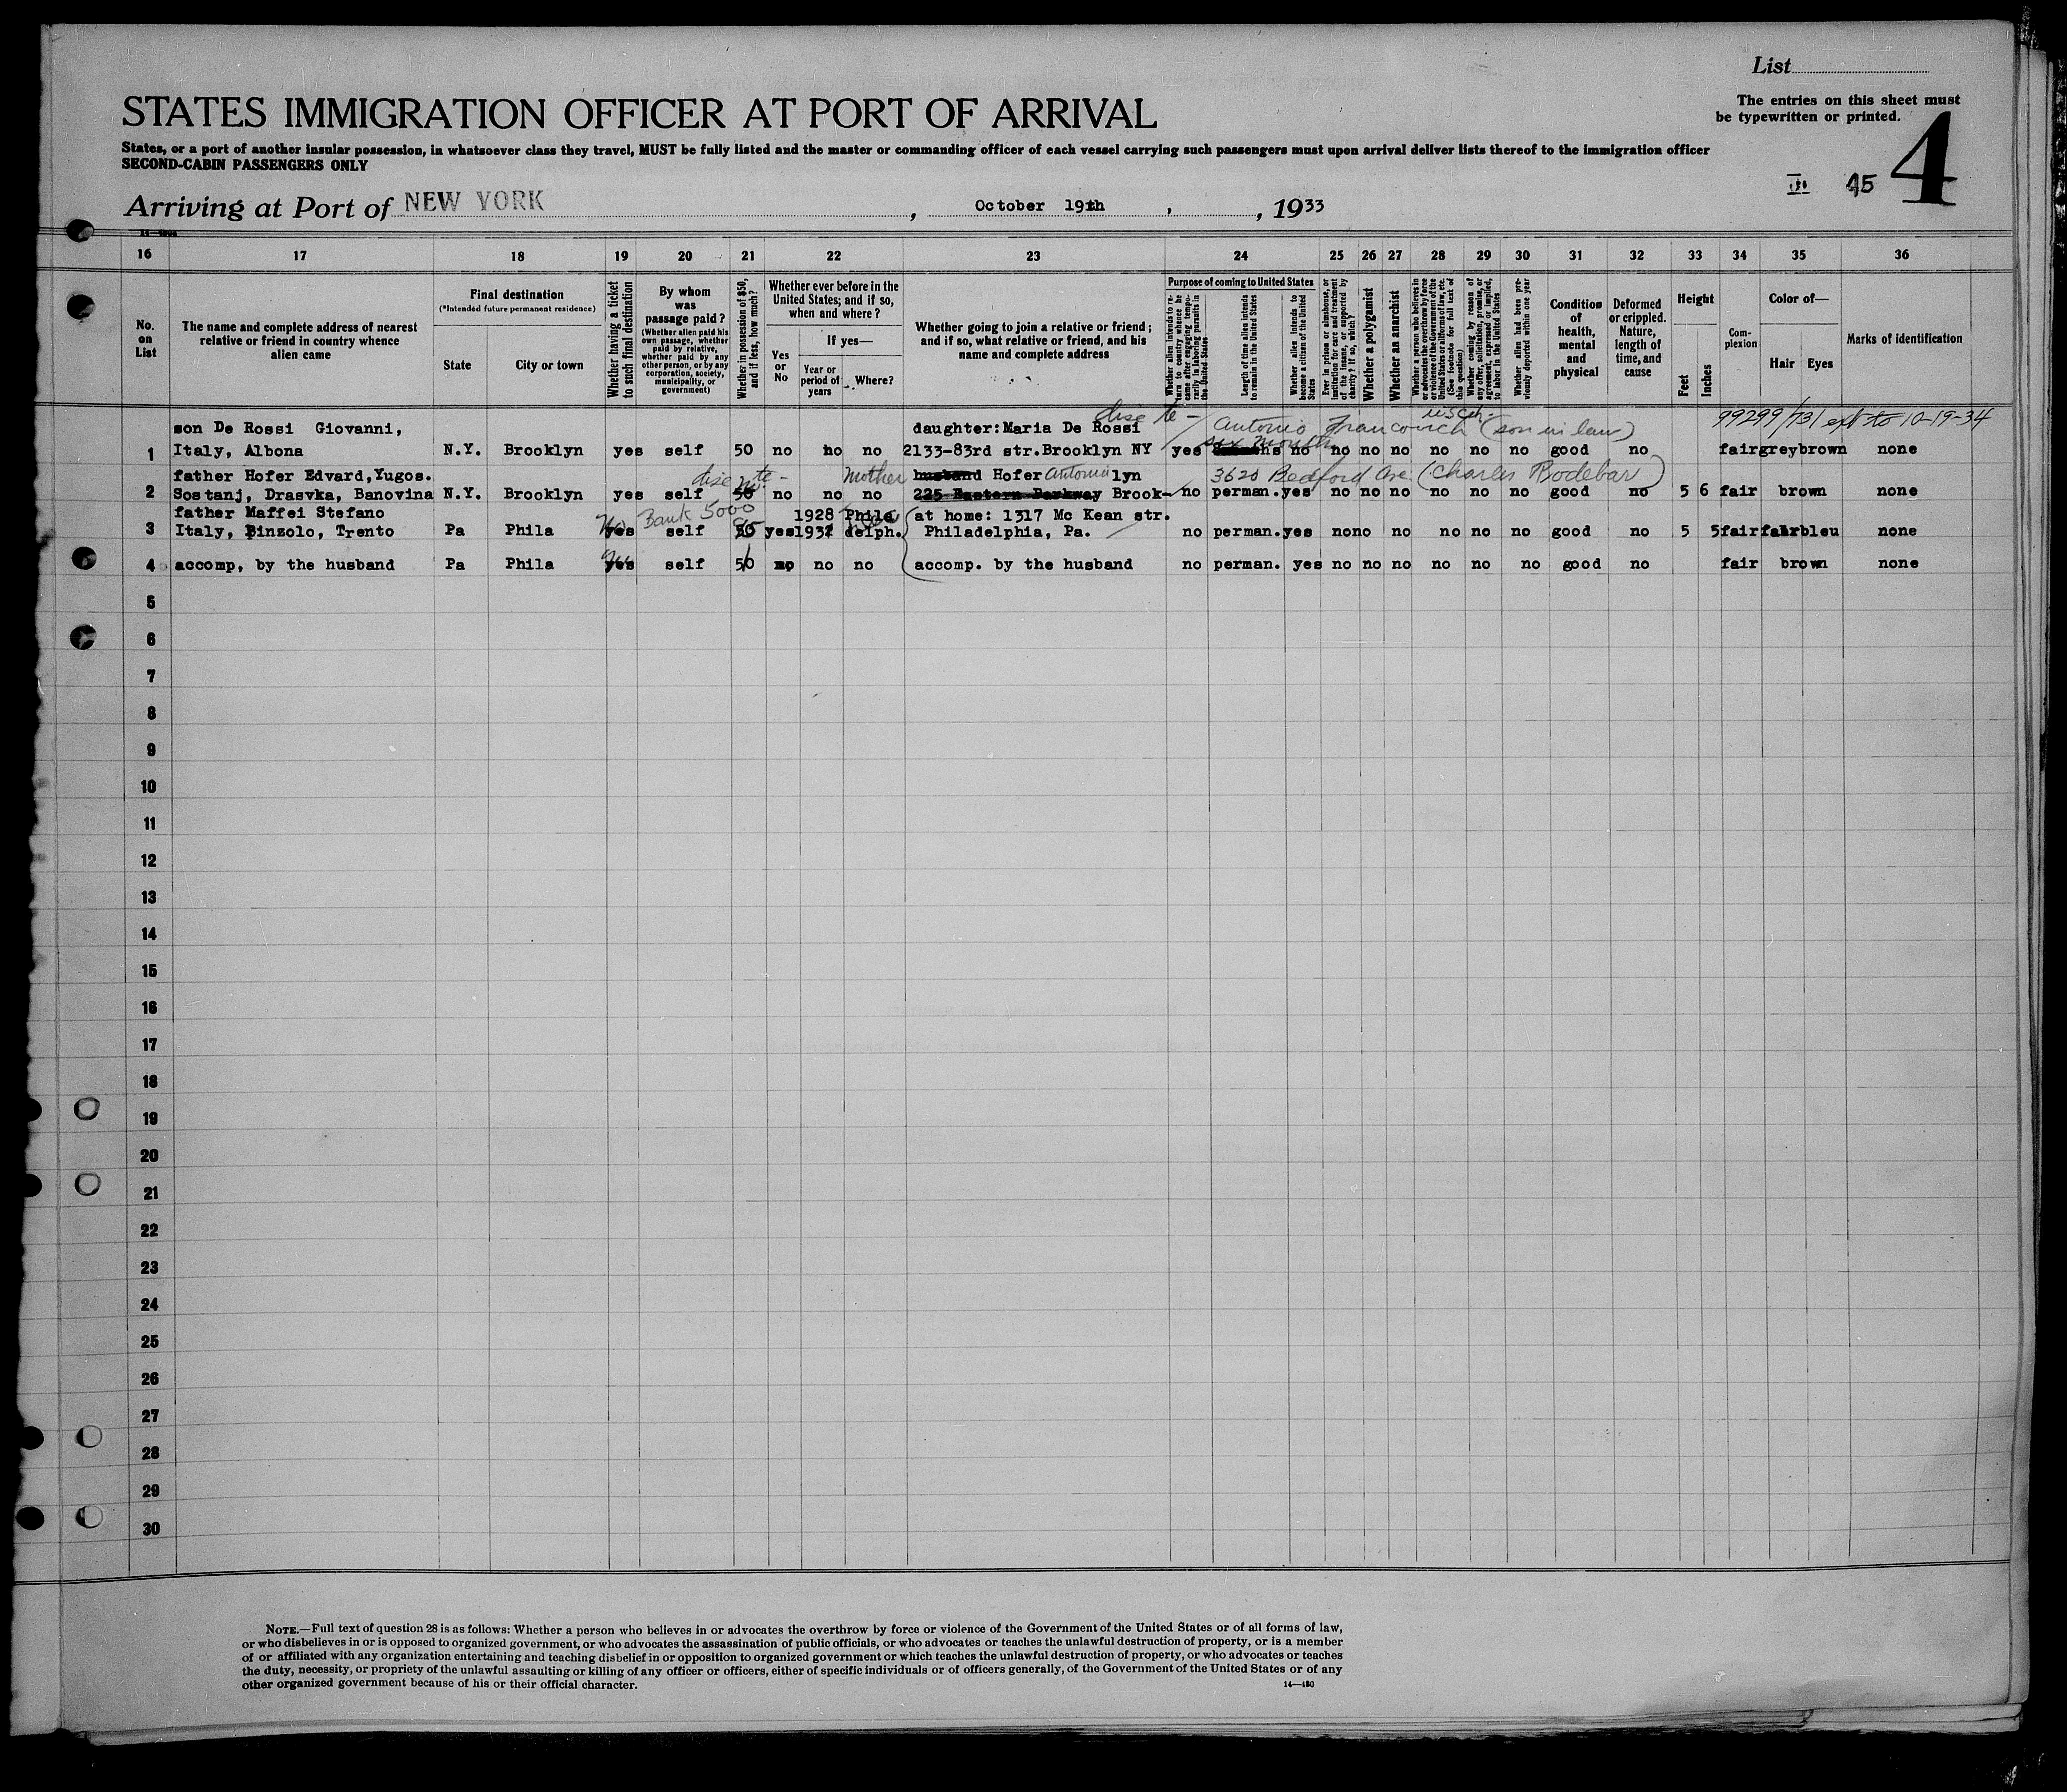 List
STATES IMMIGRATION OFFICER AT PORT OF ARRIVAL
The entries on this sheet must
be typewritten or printed.
States, or a port of another insular possession, in whatsoever class they travel, MUST be fully listed and the master or commanding officer of each vessel carrying such passengers must upon arrival deliver lists thereof to the immigration officer
SECOND-CABIN PASSENGERS ONLY
45 4
Arriving at Port of NEW YORK , October 19th , , 1933
16 17 18 19 20 21 22 23 24 25 26 27 28 29 30 31 32 33 34 35 36
No. on List
The name and complete address of nearest relative or friend in country whence alien came
Final destination
(*Intended future permanent residence)
State
City or town
Whether having a ticket to such final destination
By whom was passage paid?
(Whether alien paid his own passage, whether paid by relative, whether paid by any other person, or by any corporation, society, municipality, or government)
Whether in possession of $50, and if less, how much?
Whether ever before in the United States; and if so, when and where?
Yes or No
If yes—
Year or period of years
Where?
Whether going to join a relative or friend; and if so, what relative or friend, and his name and complete address
Purpose of coming to United States
Whether alien intends to return to country whence he came after engaging temporarily in laboring pursuits in the United States
Length of time alien intends to remain in the United States
Whether alien intends to become a citizen of the United States
Ever in prison or almshouse, or institution for care and treatment of the insane, or supported by charity? If so, which?
Whether a polygamist
Whether an anarchist
Whether a person who believes in or advocates the overthrow by force or violence of the Government of the United States or all forms of law, etc. (See footnote for full text of this question)
Whether coming by reason of any offer, solicitation, promise, or agreement, expressed or implied, to labor in the United States
Whether alien had been previously deported within one year
Condition of health, mental and physical
Deformed or crippled. Nature, length of time, and cause
Height
Feet
Inches
Complexion
Color of—
Hair
Eyes
Marks of identification
son De Rossi Giovanni, daughter:Maria De Rossi Antonio Francovich (son in law) 99299/731 ext to 10-19-34
1 Italy, Albona N.Y. Brooklyn yes self 50 no no no 2133-83rd str.Brooklyn NY yes six months no no no no no no no good no fair grey brown none
father Hofer Edvard,Yugos. Mother husband Hofer Antonia lyn 3620 Bedford Ave (Charles Bodebar)
2 Sostanj, Drasvka, Banovina N.Y. Brooklyn yes self 50 no no no 225 Eastern Parkway Brook- no perman. yes no no no no no no good no 5 6 fair brown none
father Maffei Stefano Bank 5000 1928 Phila at home: 1317 Mc Kean str.
3 Italy, Pinzolo, Trento Pa Phila yes self 50 yes 1932 delph. Philadelphia, Pa. no perman. yes no no no no no no good no 5 5 fair fair bleu none
4 accomp, by the husband Pa Phila yes self 50 no no no accomp. by the husband no perman. yes no no no no no no good no fair brown none
5
6
7
8
9
10
11
12
13
14
15
16
17
18
19
20
21
22
23
24
25
26
27
28
29
30
NOTE.—Full text of question 28 is as follows: Whether a person who believes in or advocates the overthrow by force or violence of the Government of the United States or of all forms of law,
or who disbelieves in or is opposed to organized government, or who advocates the assassination of public officials, or who advocates or teaches the unlawful destruction of property, or is a member
of or affiliated with any organization entertaining and teaching disbelief in or opposition to organized government or which teaches the unlawful destruction of property, or who advocates or teaches
the duty, necessity, or propriety of the unlawful assaulting or killing of any officer or officers, either of specific individuals or of officers generally, of the Government of the United States or of any
other organized government because of his or their official character.
14—430